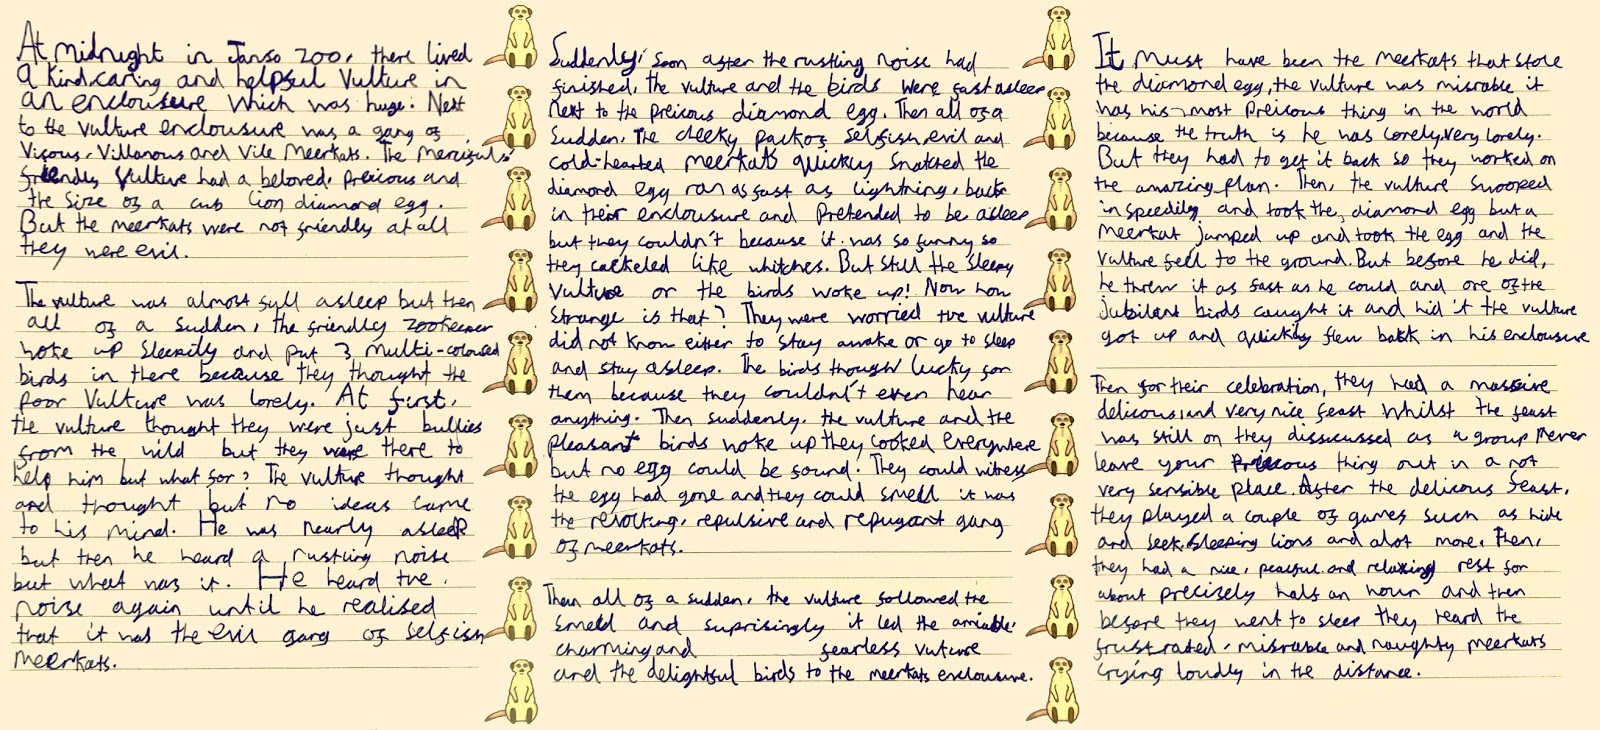 At midnight in Janso zoo, there lived
a kind, caring and helpful Vulture in
an enclousere which was huge. Next
to the vulture enclousure was a gang of
Vicous, Villanous and Vile Meerkats. The Mercifuls
friendly Vulture had a beloved, preicous and
the size of a cub lion diamond egg.
But the meerkats were not friendly at all
they were evil.
The vulture was almost full asleep but then
all of a sudden, the friendly zookeeper
woke up sleepily and put 3 multi-coloured
birds in there because they thought the
poor Vulture was lonely. At first,
the vulture thought they were just bullies
from the wild but they were there to
help him but what for? The vulture thought
and thought but no ideas came
to his mind. He was nearly asleep
but then he heard a rustling noise
but what was it. He heard the
noise again until he realised
that it was the evil gang of selfish
meerkats.
Suddenly, soon after the rustling noise had
finished, the vulture and the birds were fast asleep
next to the preicous diamond egg. Then all of a
sudden, the cheeky pack of selfish, evil and
cold-hearted meerkats quickly snatched the
diamond egg ran as fast as lightning, back
in their enclousure and pretended to be asleep
but they couldn't because it was so funny so
they cackeled like whitches. But still the sleepy
vulture or the birds woke up! Now how
strange is that? They were worried the vulture
did not know either to stay awake or go to sleep
and stay asleep. The birds thought lucky for
them because they couldn't even hear
anything. Then suddenly, the vulture and the
pleasant birds woke up they looked everywhere
but no egg could be found. They could witness
the egg had gone and they could smell it was
the revolting, repulsive and repugant gang
of meerkats.
Then all of a sudden, the vulture followed the
smell and suprisingly it led the amiable,
charming and fearless vulture
and the delightful birds to the meerkats enclousure.
It must have been the meerkats that stole
the diamond egg, the vulture was misrable it
was his most preicous thing in the world
because the truth is he was lonely, very lonely.
But they had to get it back so they worked on
the amazing plan. Then, the vulture swooped
in speedily and took the diamond egg but a
meerkat jumped up and took the egg and the
vulture fell to the ground. But before he did,
he threw it as fast as he could and one of the
jubilant birds caught it and hid it the vulture
got up and quickly flew back in his enclousure
Then for their celebration, they had a massive
delicous, and very nice feast whilst the feast
was still on they disscussed as a group never
leave your preicous thing out in a not
very sensible place. After the delicous feast,
they played a couple of games such as hide
and seek, sleeping lions and alot more. Then,
they had a nice, peacful and relaxing rest for
about precisely half an hour and then
before they went to sleep they heard the
frustrated, misrable and naughty meerkats
crying loudly in the distance.